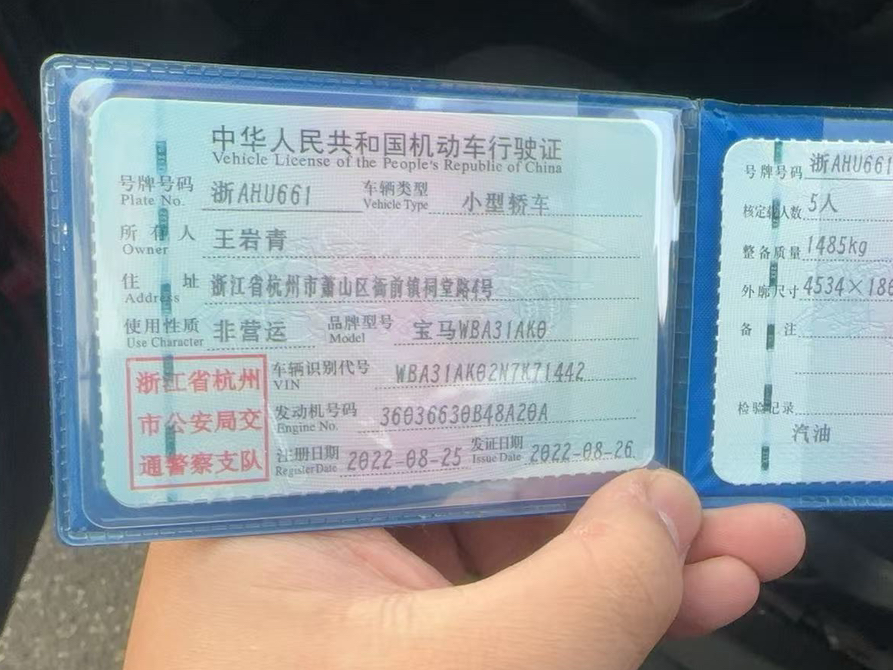 中华人民共和国机动车行驶证
Vehicle License of the People's Republic of China
号牌号码 浙AHU661 车辆类型 小型轿车
Plate No. Vehicle Type
所有人 王岩青
Owner
住址 浙江省杭州市萧山区衙前镇祠堂路4号
Address
使用性质 非营运 品牌型号 宝马WBA31AK0
Use Character Model
浙江省杭州
市公安局交
通警察支队
车辆识别代号 WBA31AK02N7K71442
VIN
发动机号码 36036630B48A20A
Engine No.
注册日期 2022-08-25 发证日期 2022-08-26
Register Date Issue Date
号牌号码 浙AHU661
核定载人数 5人
整备质量 1485kg
外廓尺寸 4534×186
备注
检验记录
汽油